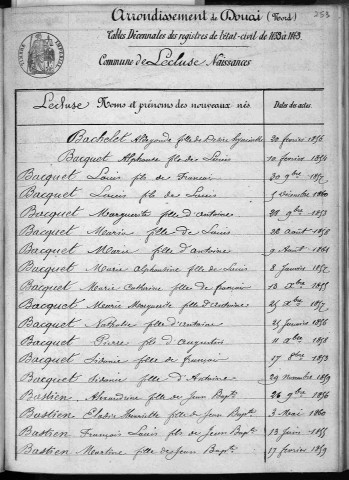 253
Arrondissement de Douai (Nord)
Tables Décennales des registres de l'état-civil de 1853 à 1863.
Commune de Lécluse Naissances
Lécluse Noms et prénoms des nouveaux nés. Dates des actes.
Bachelet Aldegonde fille de Désiré Hyacinthe 20 février 1856
Bacquet Alphonse fils de Louis 10 février 1854
Bacquet Louis fils de François 20 9bre
Bacquet Louis fils de Louis 5 Décembre 1860
Bacquet Marguerite fille d'Antoine 28 9bre 1853
Bacquet Marie fille de Louis 20 Août 1858
Bacquet Marie fille d'Antoine 9 Août 1861
Bacquet Marie Alphonsine fille de Louis 8 Janvier
Bacquet Marie Catherine fille de françois 13 Xbre 1855
Bacquet Marie Marguerite fille d'Antoine 25 Xbre
Bacquet Nathalie fille d'antoine 25 Janvier 1856
Bacquet Pierre fils d'augustin 11 Xbre 1858
Bacquet Sidonie fille de françois 17 8bre 1853
Bacquet Sidonie fille d'Antoine 29 Novembre 1859
Bastien Alexandrine fille de Jean Bapte 26 9bre 1856
Bastien Elodie Henriette fille de Jean Bapte 3 Mai 1860
Bastien François Louis fils de Jean Bapte 13 Juin 1855
Bastien Martine fille de Jean Bapte 17 février 1859